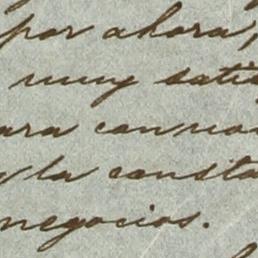 por ahora,
muy satis
ara con nos
y la consta
negocios.